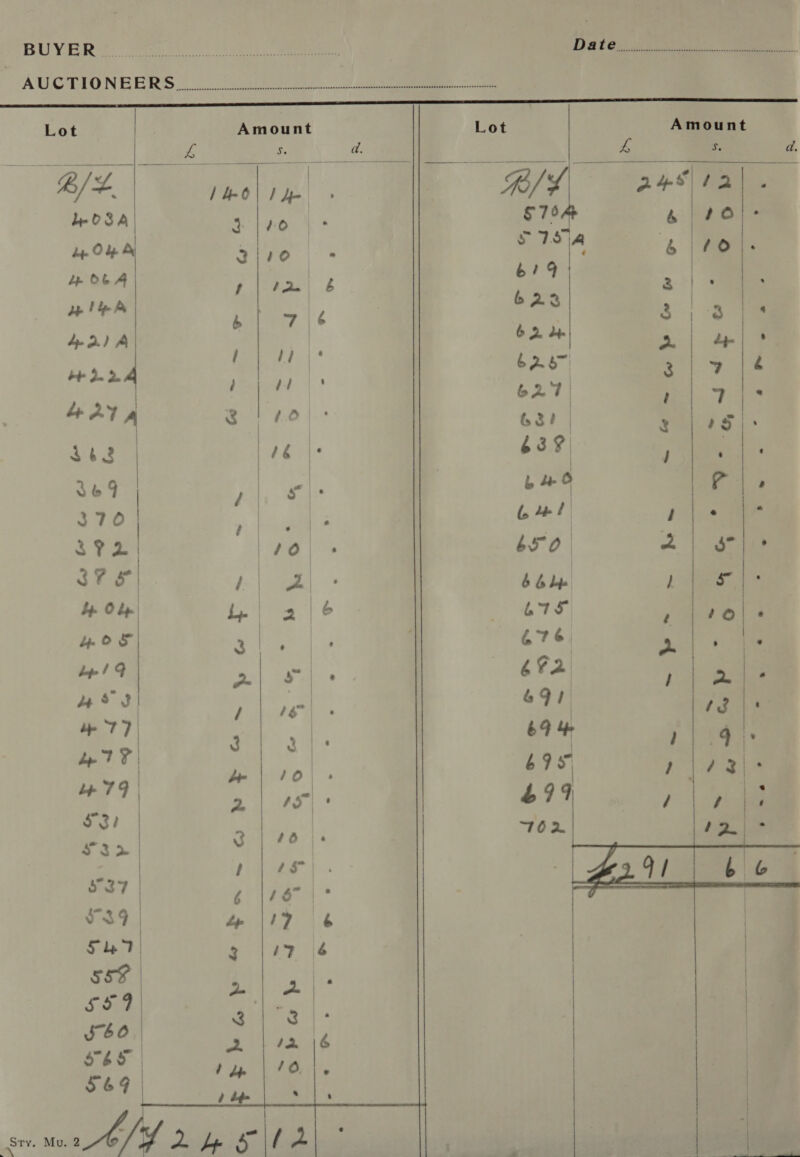 BUYER
Date
AUCTIONEERS
Lot Amount
£ s. d.
B/F. 140 14 .
403A 3 10 .
404A 3 10 .
406A 1 12 6
414A 6 7 6
421A 1 11 .
422A 1 11 .
427A 3 10 .
363 16 .
369 1 5 .
370 1 . .
382 10 .
385 1 2 .
404 4 2 6
405 3 . .
419 2 5 .
453 1 15 .
477 3 3 .
478 4 10 .
479 2 15 .
531 3 10 .
532 1 15 .
537 6 15 .
539 4 17 6
547 3 17 6
558 2 2 .
559 3 3 .
560 2 12 6
565 14 10 .
569 14 . .
C/F 245 12 .
Sty. Mu. 2
Lot Amount
£ s. d.
B/F 245 12 .
570A 6 10 .
575A 6 10 .
619 3 . .
623 3 3 .
624 2 4 .
625 3 7 6
627 1 7 .
631 3 15 .
638 1 . .
640 8 .
641 1 . .
650 2 5 .
664 1 5 .
675 1 10 .
676 2 . .
682 1 2 .
691 13 .
694 1 9 .
695 1 13 .
699 1 1 .
702 12 .
£291 6 6